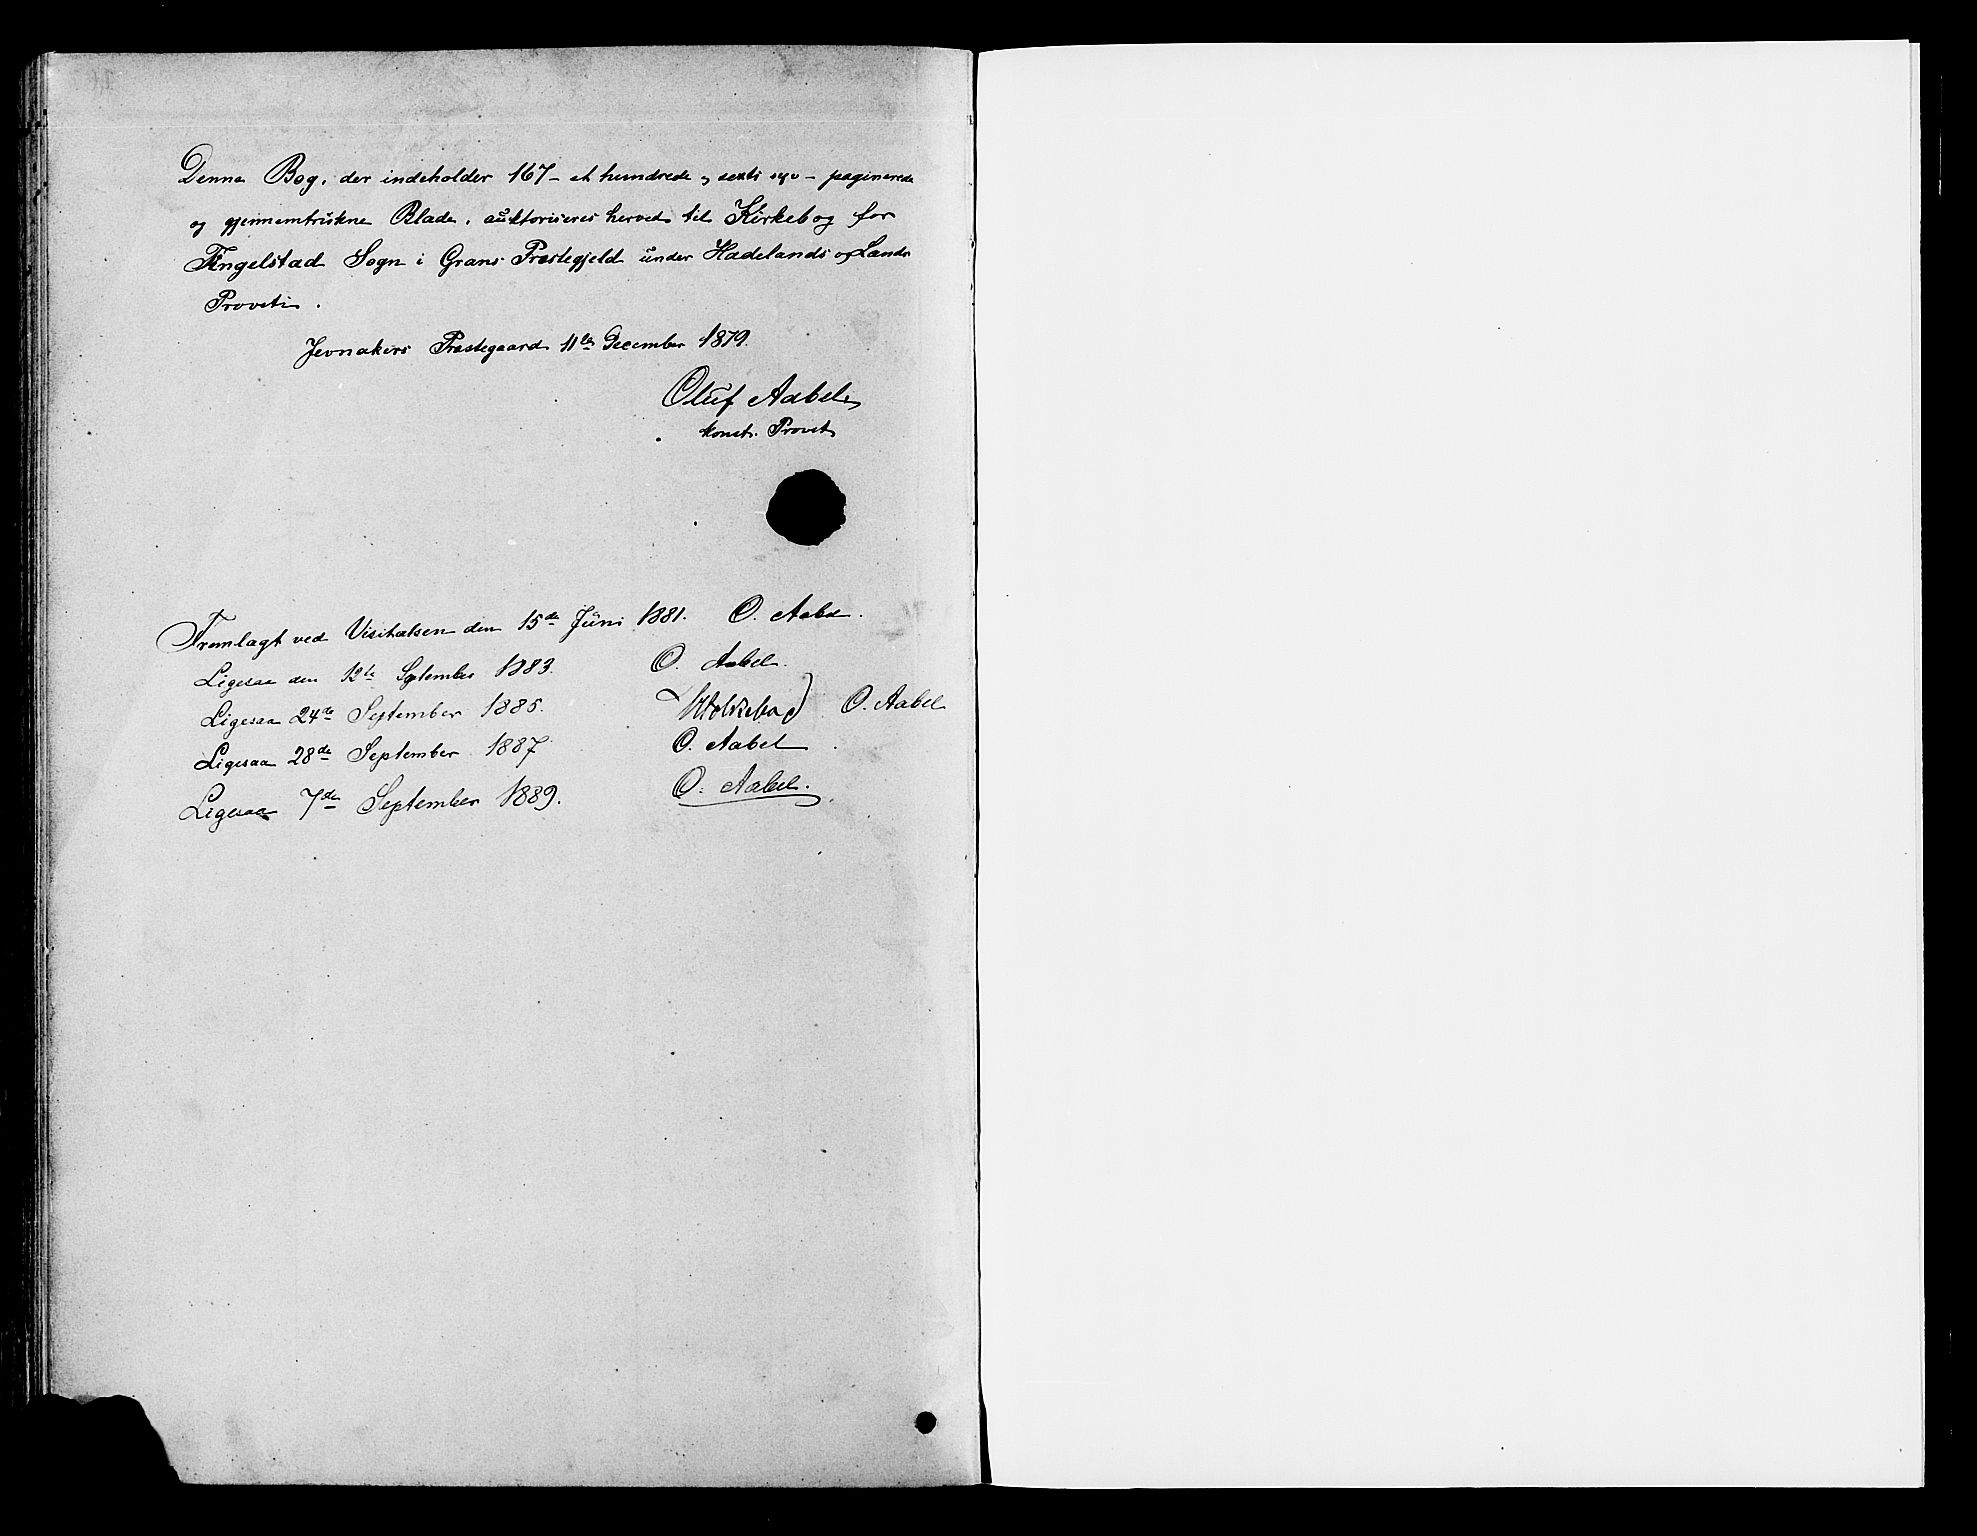 Denne Bog, der indeholder 167 – et hundrede og sexti syv – paginerede
og gjennemtrukne Blade, auktoriseres herved til Kirkebog for
Tingelstad Sogn i Grans Præstegjeld under Hadelands og Lands
Provsti.
Jevnakers Præstegaard 11te December 1879.
Oluf Aabel
konst. Provst
Fremlagt ved Visitatsen den 15de Juni 1881. O. Aabel.
Ligesaa den 12te September 1883. O. Aabel.
Ligesaa 24de September 1885. O. Aabel
Ligesaa 28de September 1887 O. Aabel
Ligesaa 7de September 1889. O. Aabel.